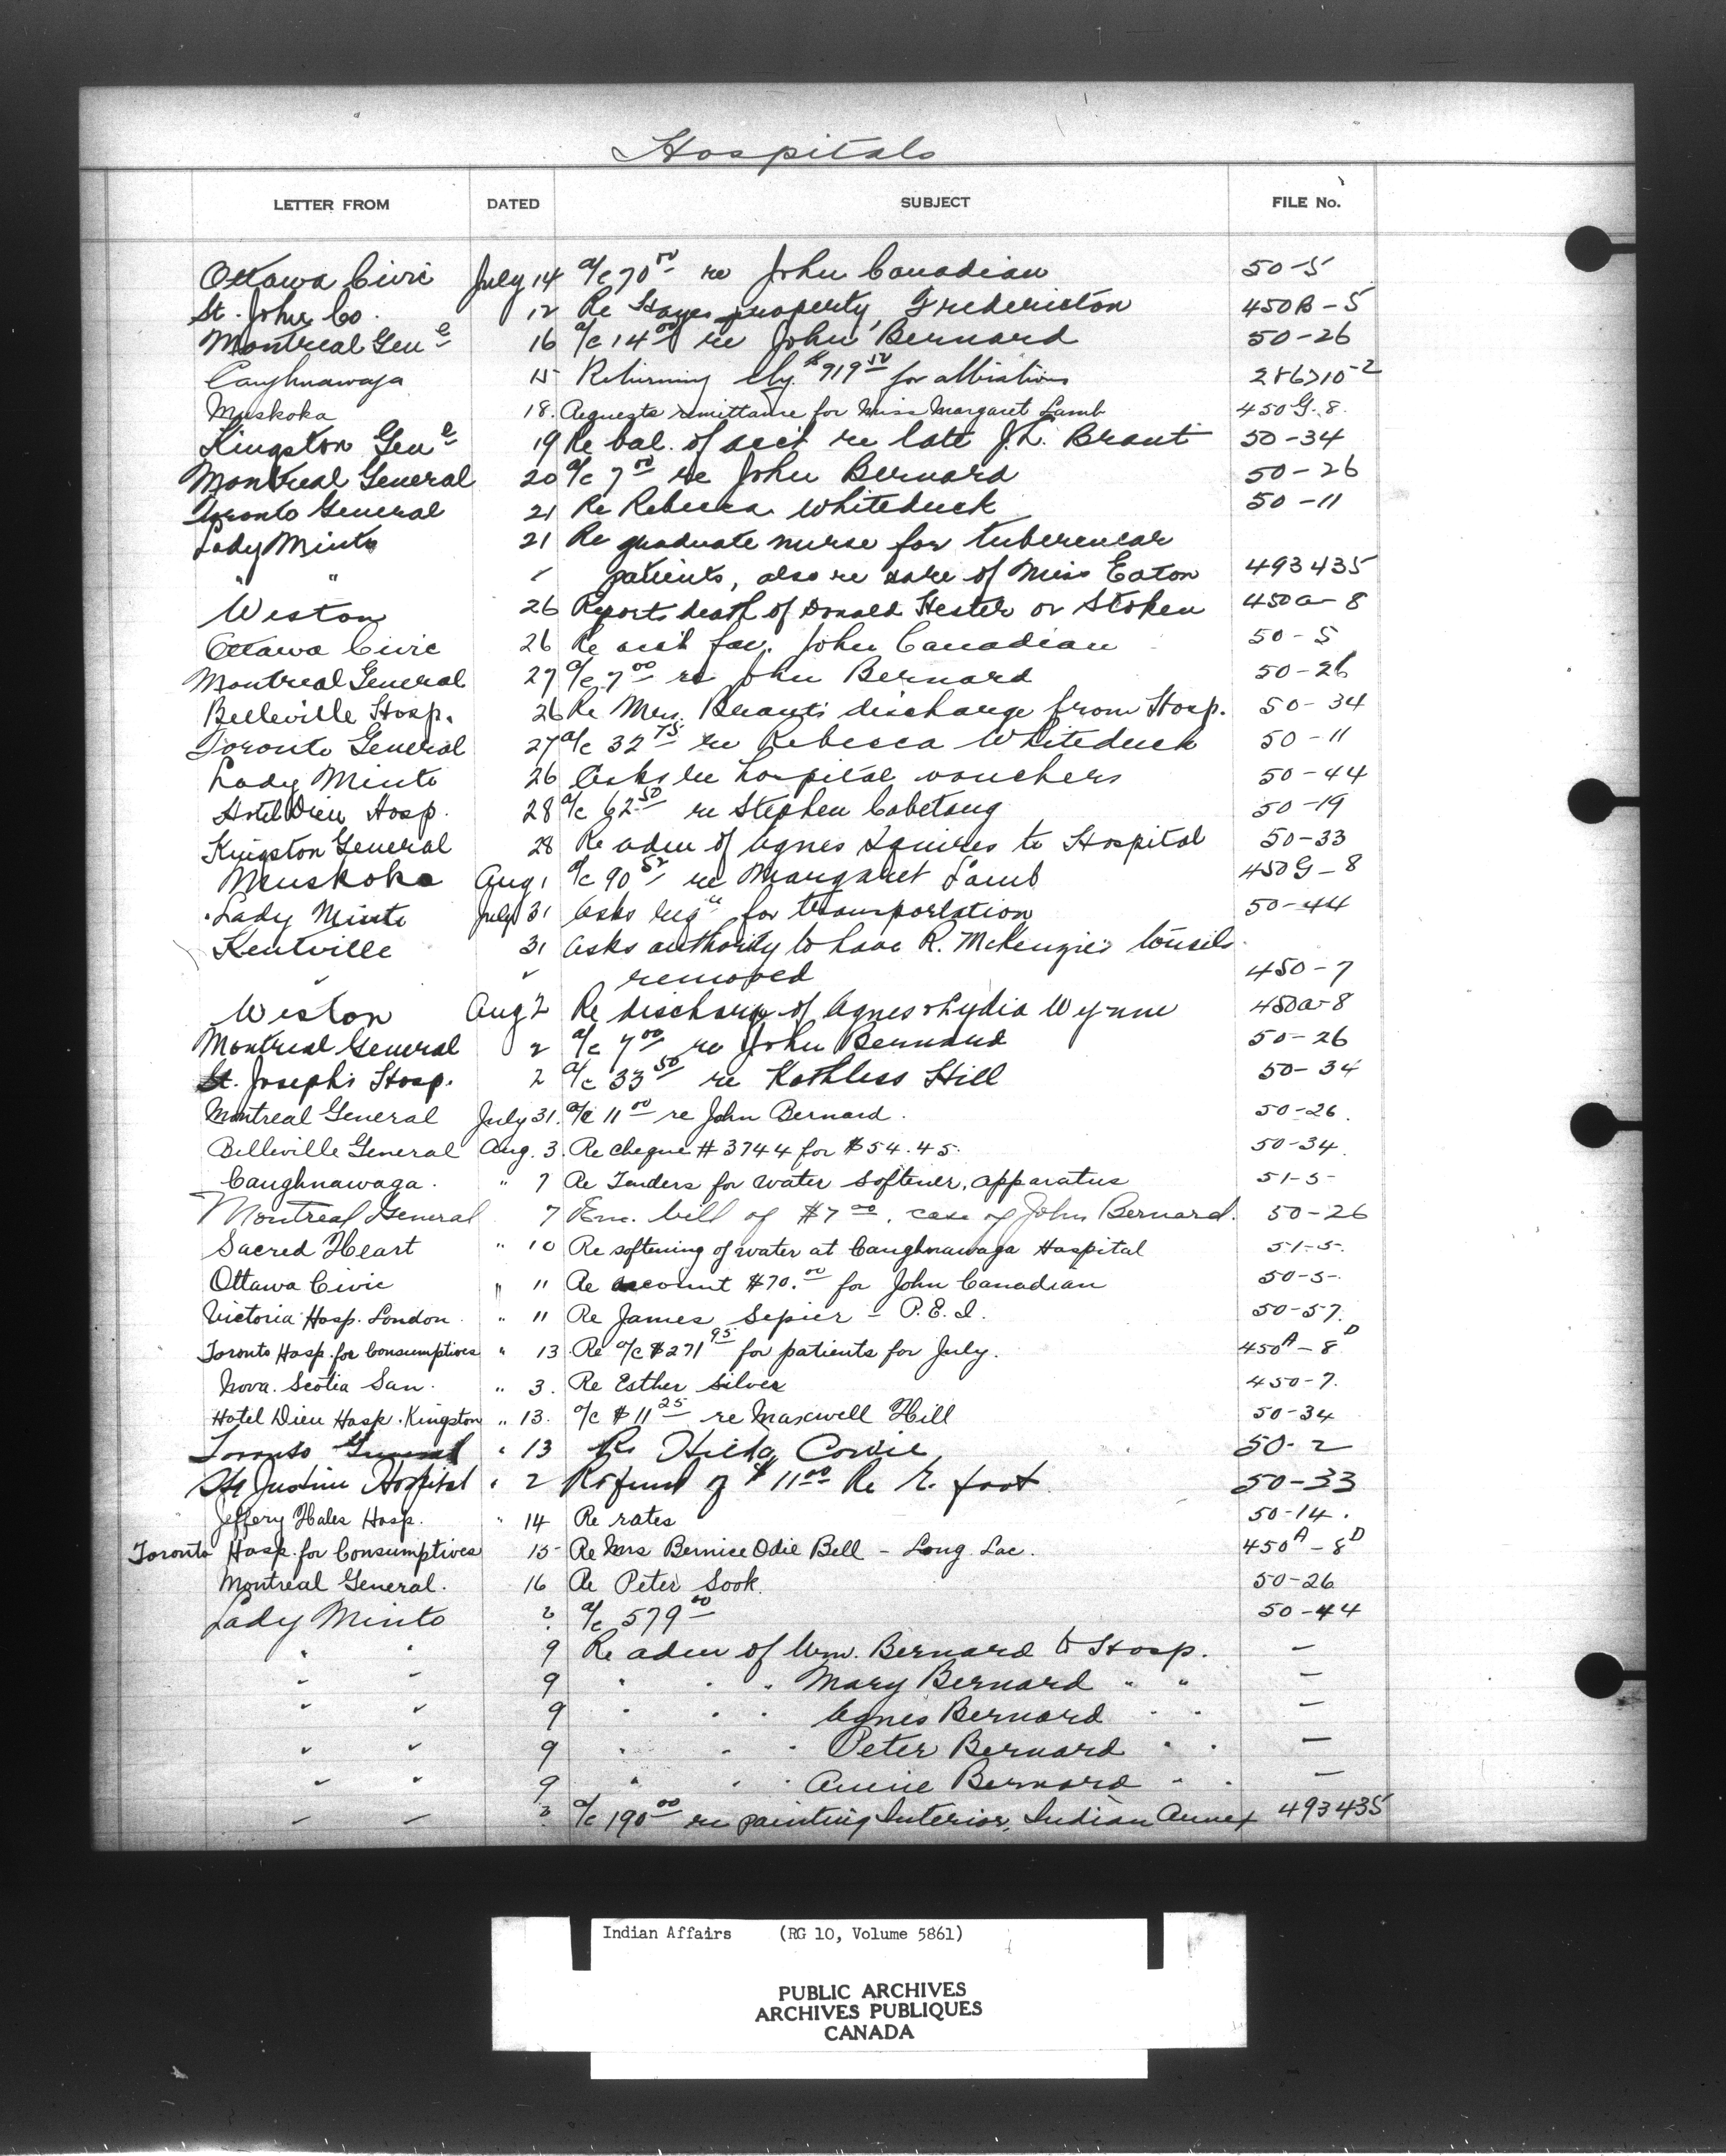 Hospitals
LETTER FROM DATED SUBJECT FILE No.
Ottawa Civic July 14 a/c 70 00 re John Canadian 50-5
St. John Co. 12 Re Hayes property, Fredericton 450B-5
Montreal Gen e 16 a/c 14 00 re John Bernard 50-26
Caughnawaga 15 Returning chq. $719 50 for 286710-2
Muskoka 18. Requests remittance for Miss Margaret Lamb 450G.8.
Kingston Gen e 19 Re bal. of acct re late J.L. Brant 50-34
Montreal General 20 a/c 7 00 re John Bernard 50-26
Toronto General 21 Re Rebecca Whiteduck 50-11
Lady Minto 21 Re graduate nurse for tubercular
" " " patients, also re care of Miss Eaton 493435
Weston 26 Reports death of Donald Hester or Stoken 450a-8
Ottawa Civic 26 Re acct fav. John Canadian 50-5
Montreal General 27 a/c 7 00 re John Bernard 50-26
Belleville Hosp. 26 Re Mrs. Brant's discharge from Hosp. 50-34
Toronto General 27 a/c 32 75 re Rebecca Whiteduck 50-11
Lady Minto 26 Asks re hospital vouchers 50-44
Hotel Dieu Hosp. 28 a/c 62 50 re Stephen Cabetang 50-19
Kingston General 28 Re adm of Agnes Squires to Hospital 50-33
Muskoka Aug 1 a/c 90 52 re Margaret Lamb 450G-8
Lady Minto July 31 Asks for transportation 50-44
Kentville 31 Asks authority to have R. McKenzie's tonsils
" " removed 450-7
Weston Aug 2 Re discharge of Agnes & Lydia Wynne 450a-8
Montreal General 2 a/c 7 00 re John Bernard 50-26
St. Joseph's Hosp. 2 a/c 33 50 re Kathless Hill 50-34
Montreal General July 31. a/c 11 00 re John Bernard. 50-26.
Belleville General Aug. 3. Re cheque # 3744 for $54.45. 50-34.
Caughnawaga. " 7 Re Tenders for water softener, apparatus 51-5-
Montreal General 7 Enc. bill of $7 00, case of John Bernard. 50-26
Sacred Heart " 10 Re softening of water at Caughnawaga Hospital 51-5-
Ottawa Civic " 11 Re account $70. 00 for John Canadian 50-5-
Victoria Hosp. London " 11 Re James Sepier - P.E.I. 50-57.
Toronto Hosp. for Consumptives " 13 Re a/c $271 95 for patients for July. 450A-8D
Nova. Scotia San. " 3. Re Esther Silver 450-7.
Hotel Dieu Hosp. Kingston " 13. a/c $11 25 re Maxwell Hill 50-34
Toronto General " 13 Re Hilda Cowie 50-2
Ste Justine Hospital " 2 Refund of $11 00 Re E. foot 50-33
Jeffery Hales Hosp. " 14 Re rates 50-14.
Toronto Hosp. for Consumptives 15- Re Mrs Bernice Odie Bell - Long Lac. 450A-8D
Montreal General. 16 Re Peter Sook. 50-26
Lady Minto ? a/c 579 00 50-44
" " 9 Re adm of Wm. Bernard to Hosp. -
" " 9 " " " Mary Bernard " " -
" " 9 " " " Agnes Bernard " " -
" " 9 " " " Peter Bernard " " -
" " 9 " " " Annie Bernard " " -
" " ? a/c 190 00 re painting Interior, Indian Annex 493435
Indian Affairs (RG 10, Volume 5861)
PUBLIC ARCHIVES
ARCHIVES PUBLIQUES
CANADA